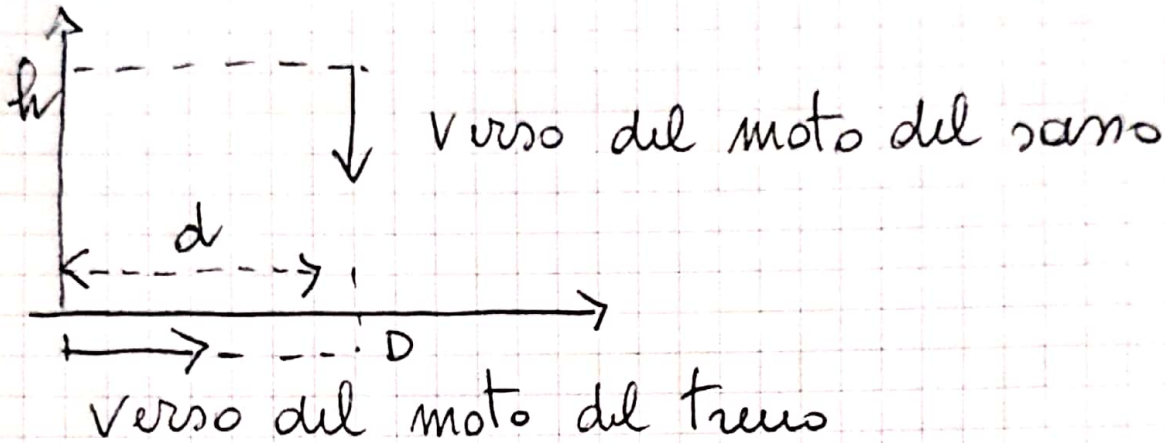 h
verso del moto del sasso
d
D
verso del moto del treno